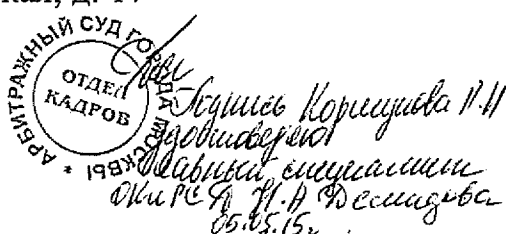 д. 17
* АРБИТРАЖНЫЙ СУД ГОРОДА МОСКВЫ
ОТДЕЛ
КАДРОВ
Подпись Коршунова П.Н
удостоверяю
Главный специалист
Н.А Демидова
05.05.15г